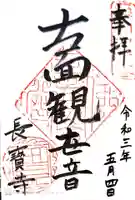 奉拝
令和三年
五月四日
十一面観世音
長寶寺